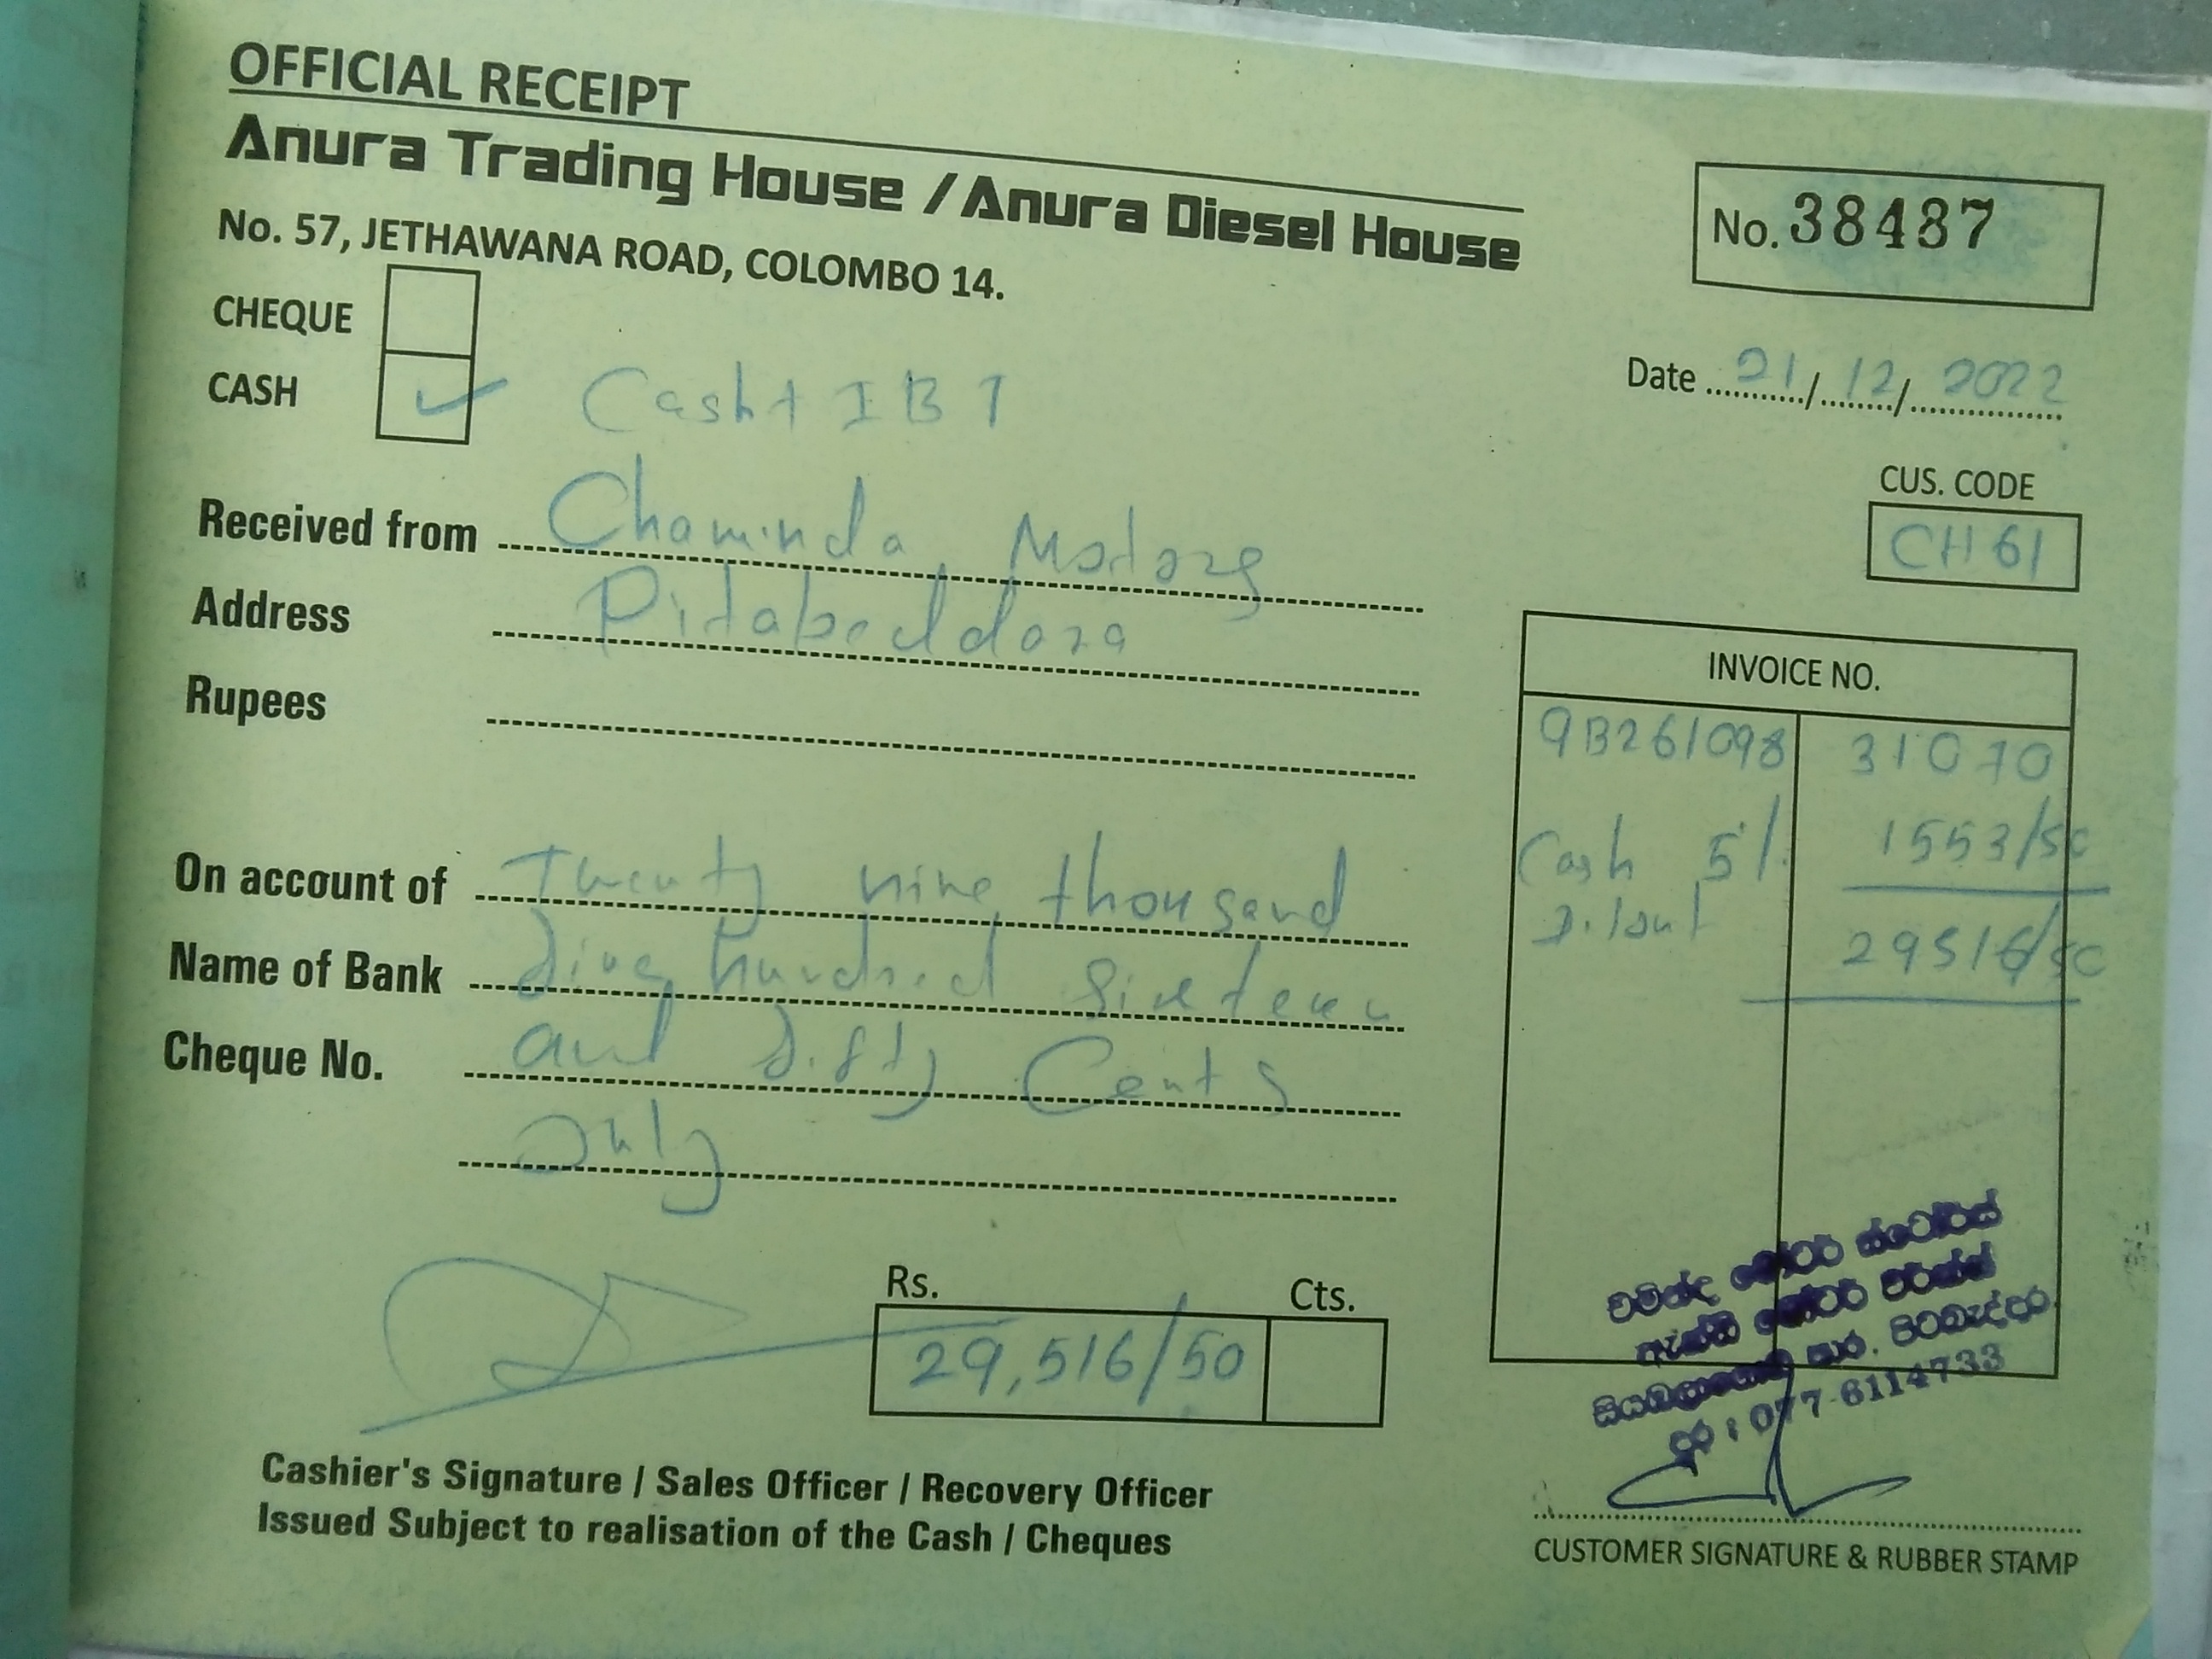 OFFICIAL RECEIPT
Anura Trading House / Anura Diesel House
No. 57, JETHAWANA ROAD, COLOMBO 14.
No. 38487
CHEQUE
CASH ✓ Cash + IBT
Date 21/12/2022
CUS. CODE
CH 61
Received from Chaminda Motors
Address Pitabeddara
Rupees
INVOICE NO.
9B261098 31070
Cash 5% 1553/50
29516/50
On account of Twenty nine thousand
Name of Bank five hundred sixteen
Cheque No. and fifty Cents
only
Rs. Cts.
29,516/50
චමින්ද මෝටර් ස්ටෝර්ස්
මෝටර් වර්ක්ස්
පාර. පිටබැද්දර
දුර : 077-6114733
Cashier's Signature / Sales Officer / Recovery Officer
Issued Subject to realisation of the Cash / Cheques
CUSTOMER SIGNATURE & RUBBER STAMP